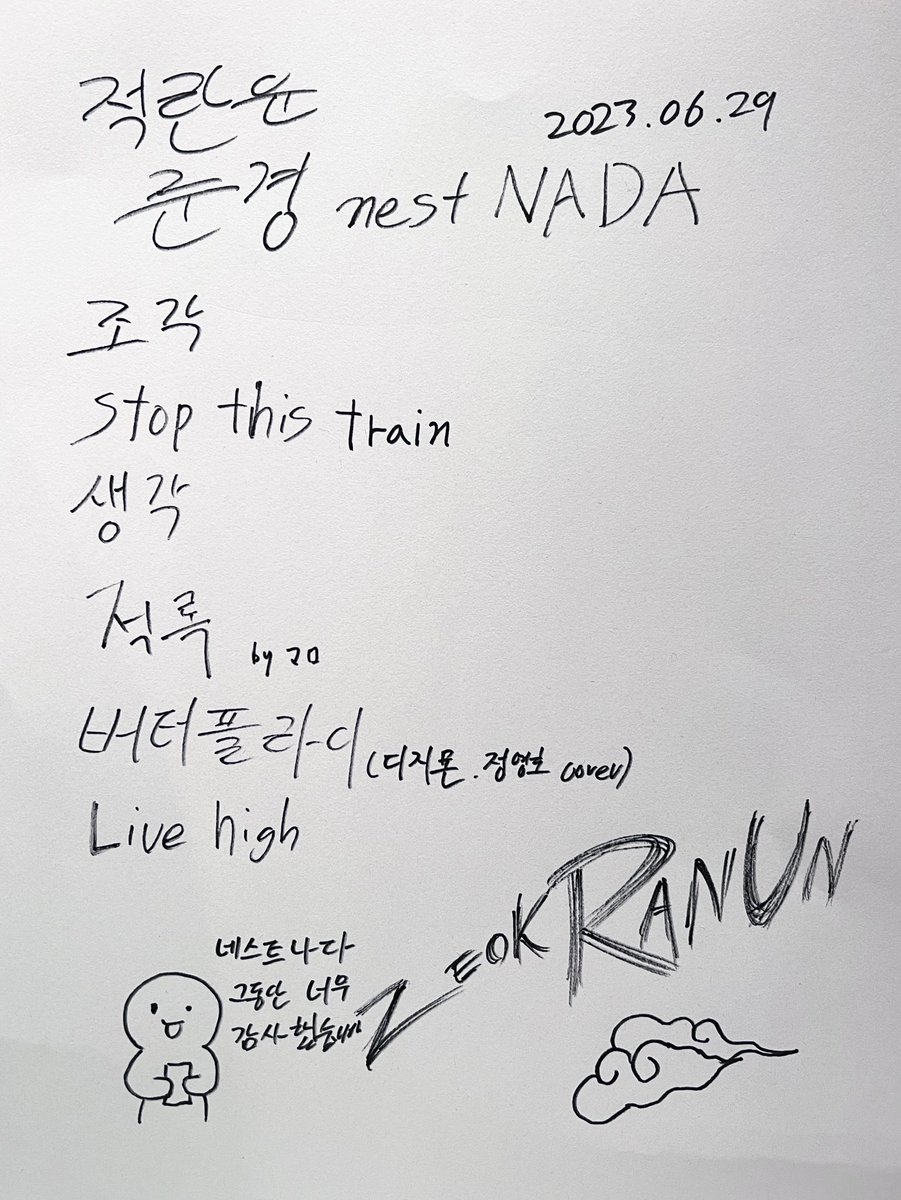 적란운
2023.06.29
륜경 nest NADA
조각
stop this train
생각
적록 by 고미
버터플라이 (디지몬. 정영호 cover)
Live high
ZEOKRANUN
네스트나다
그동안 너무
감사했습니다